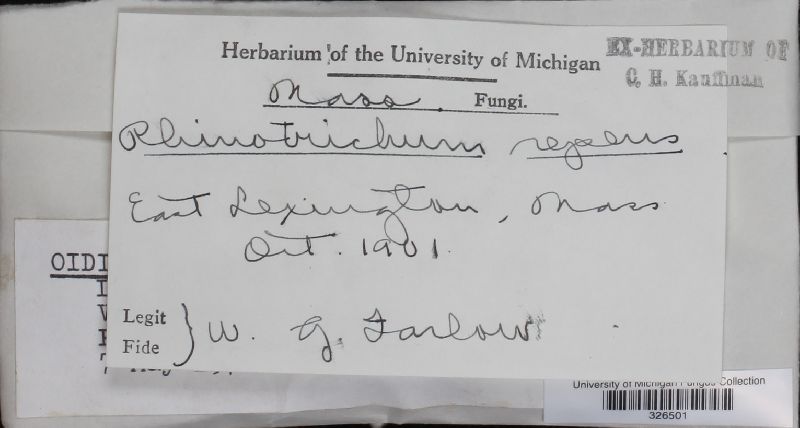 Herbarium of the University of Michigan
EX-HERBARIUM OF
C. H. Kauffman
Mass. Fungi.
Rhinotrichum repens
East Lexington, Mass
Oct. 1901.
Legit
Fide
W. G. Farlow
OIDI
University of Michigan Fungus Collection
326501